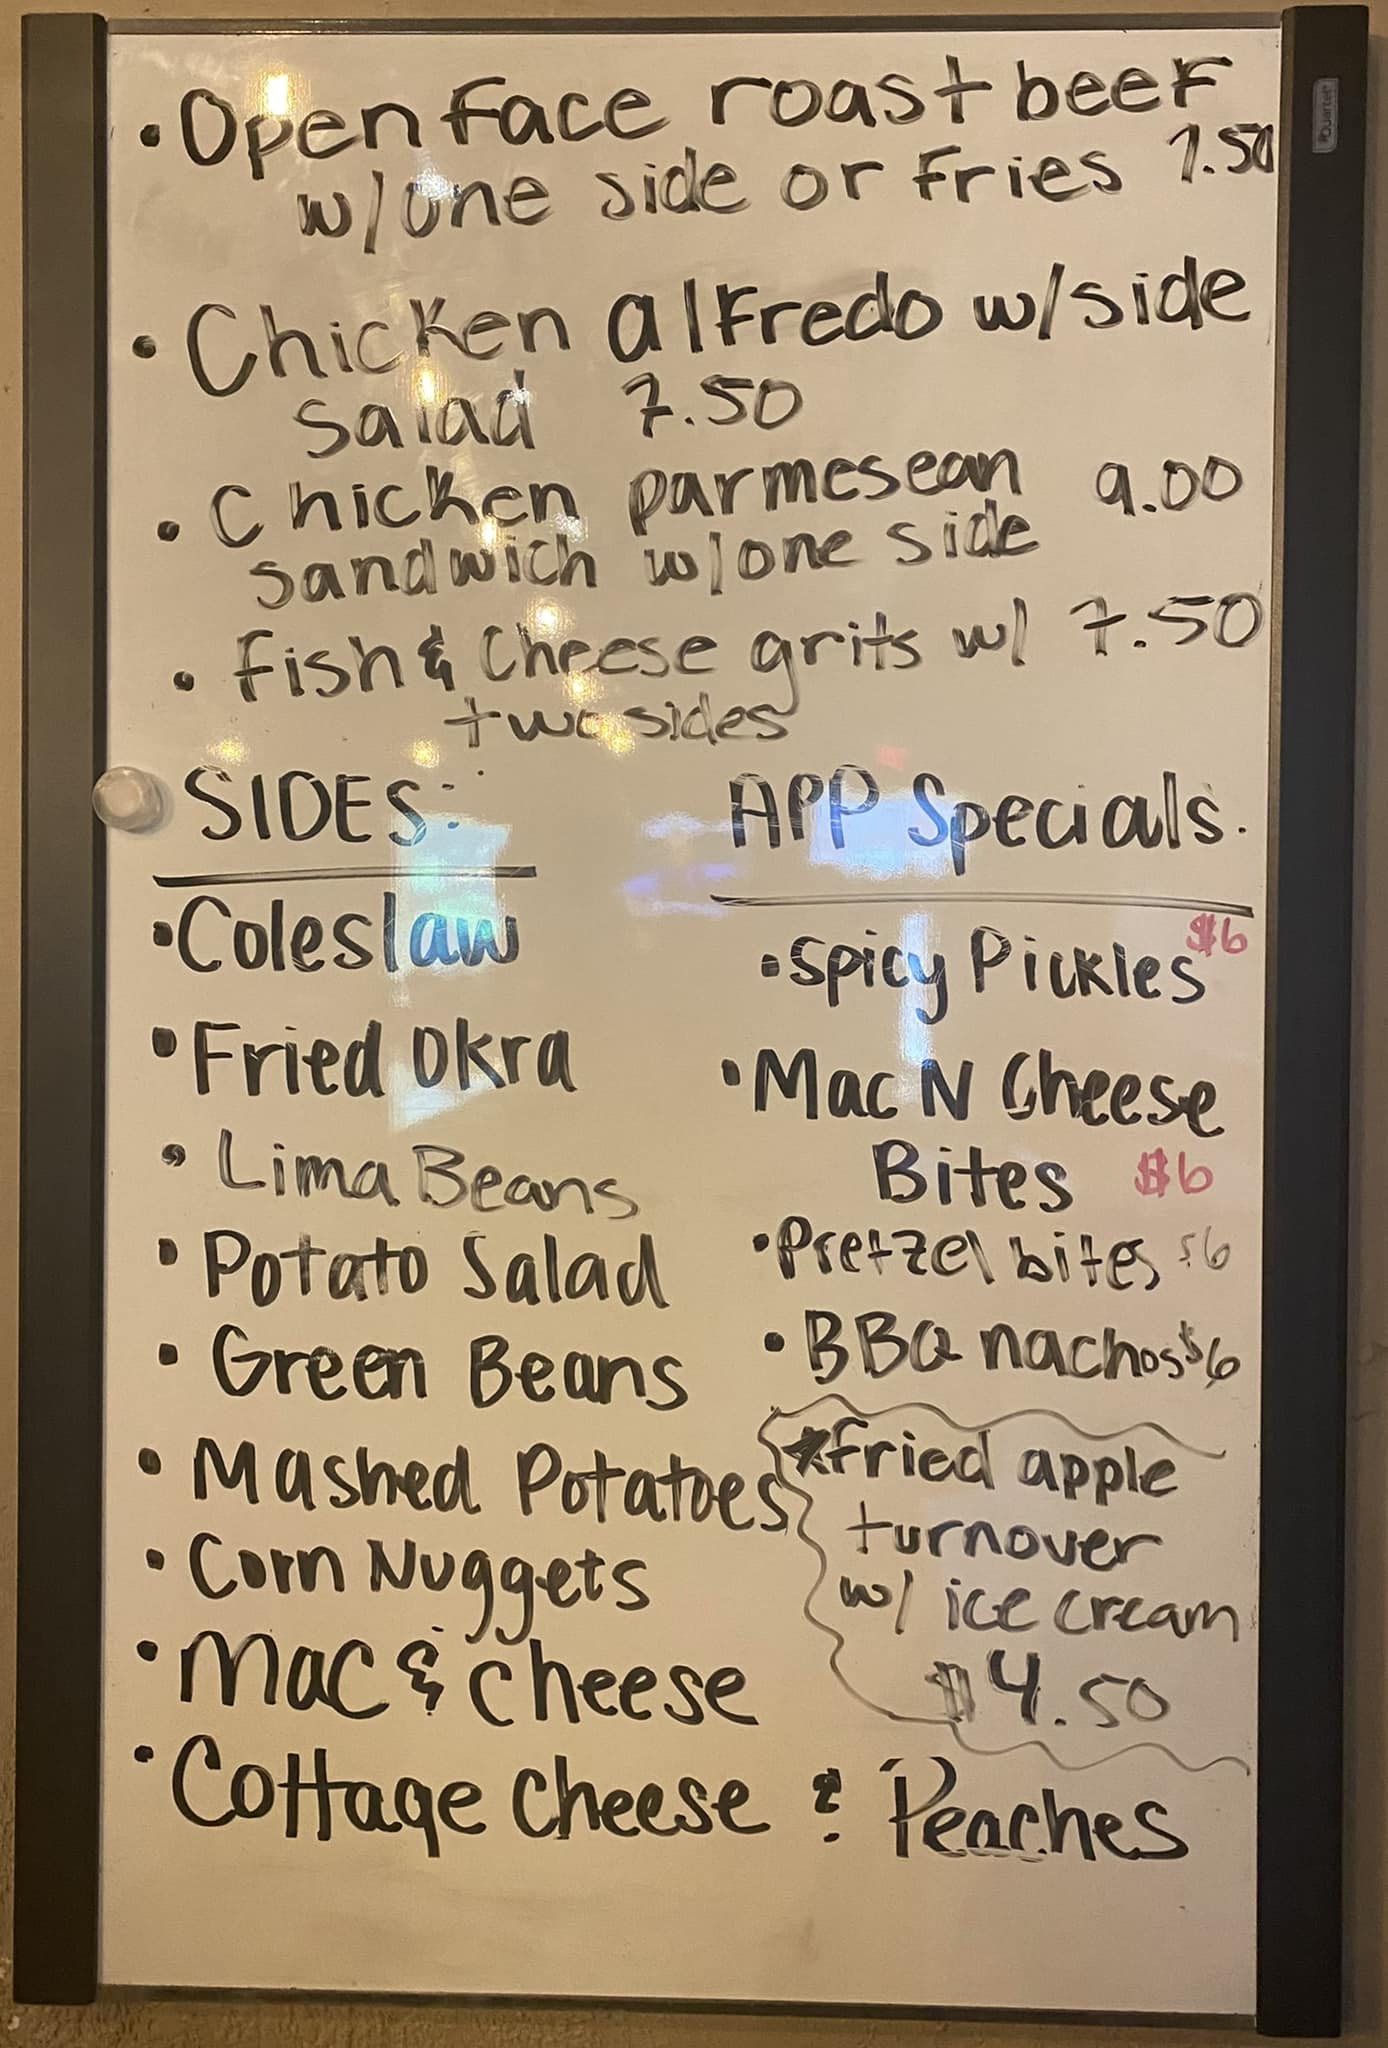 • Open Face roast beef
w/one side or Fries 7.50
• Chicken alfredo w/side
salad 7.50
• Chicken parmesean 9.00
sandwich w/one side
• Fish & Cheese grits w/ 7.50
two sides
SIDES:
• Coleslaw
• Fried Okra
• Lima Beans
• Potato Salad
• Green Beans
• Mashed Potatoes
• Corn Nuggets
• Mac & cheese
• Cottage cheese & Peaches
APP Specials:
• Spicy Pickles $6
• Mac N Cheese
Bites $6
• Pretzel bites $6
• BBQ nachos $6
★ fried apple
turnover
w/ ice cream
$4.50
Quartet